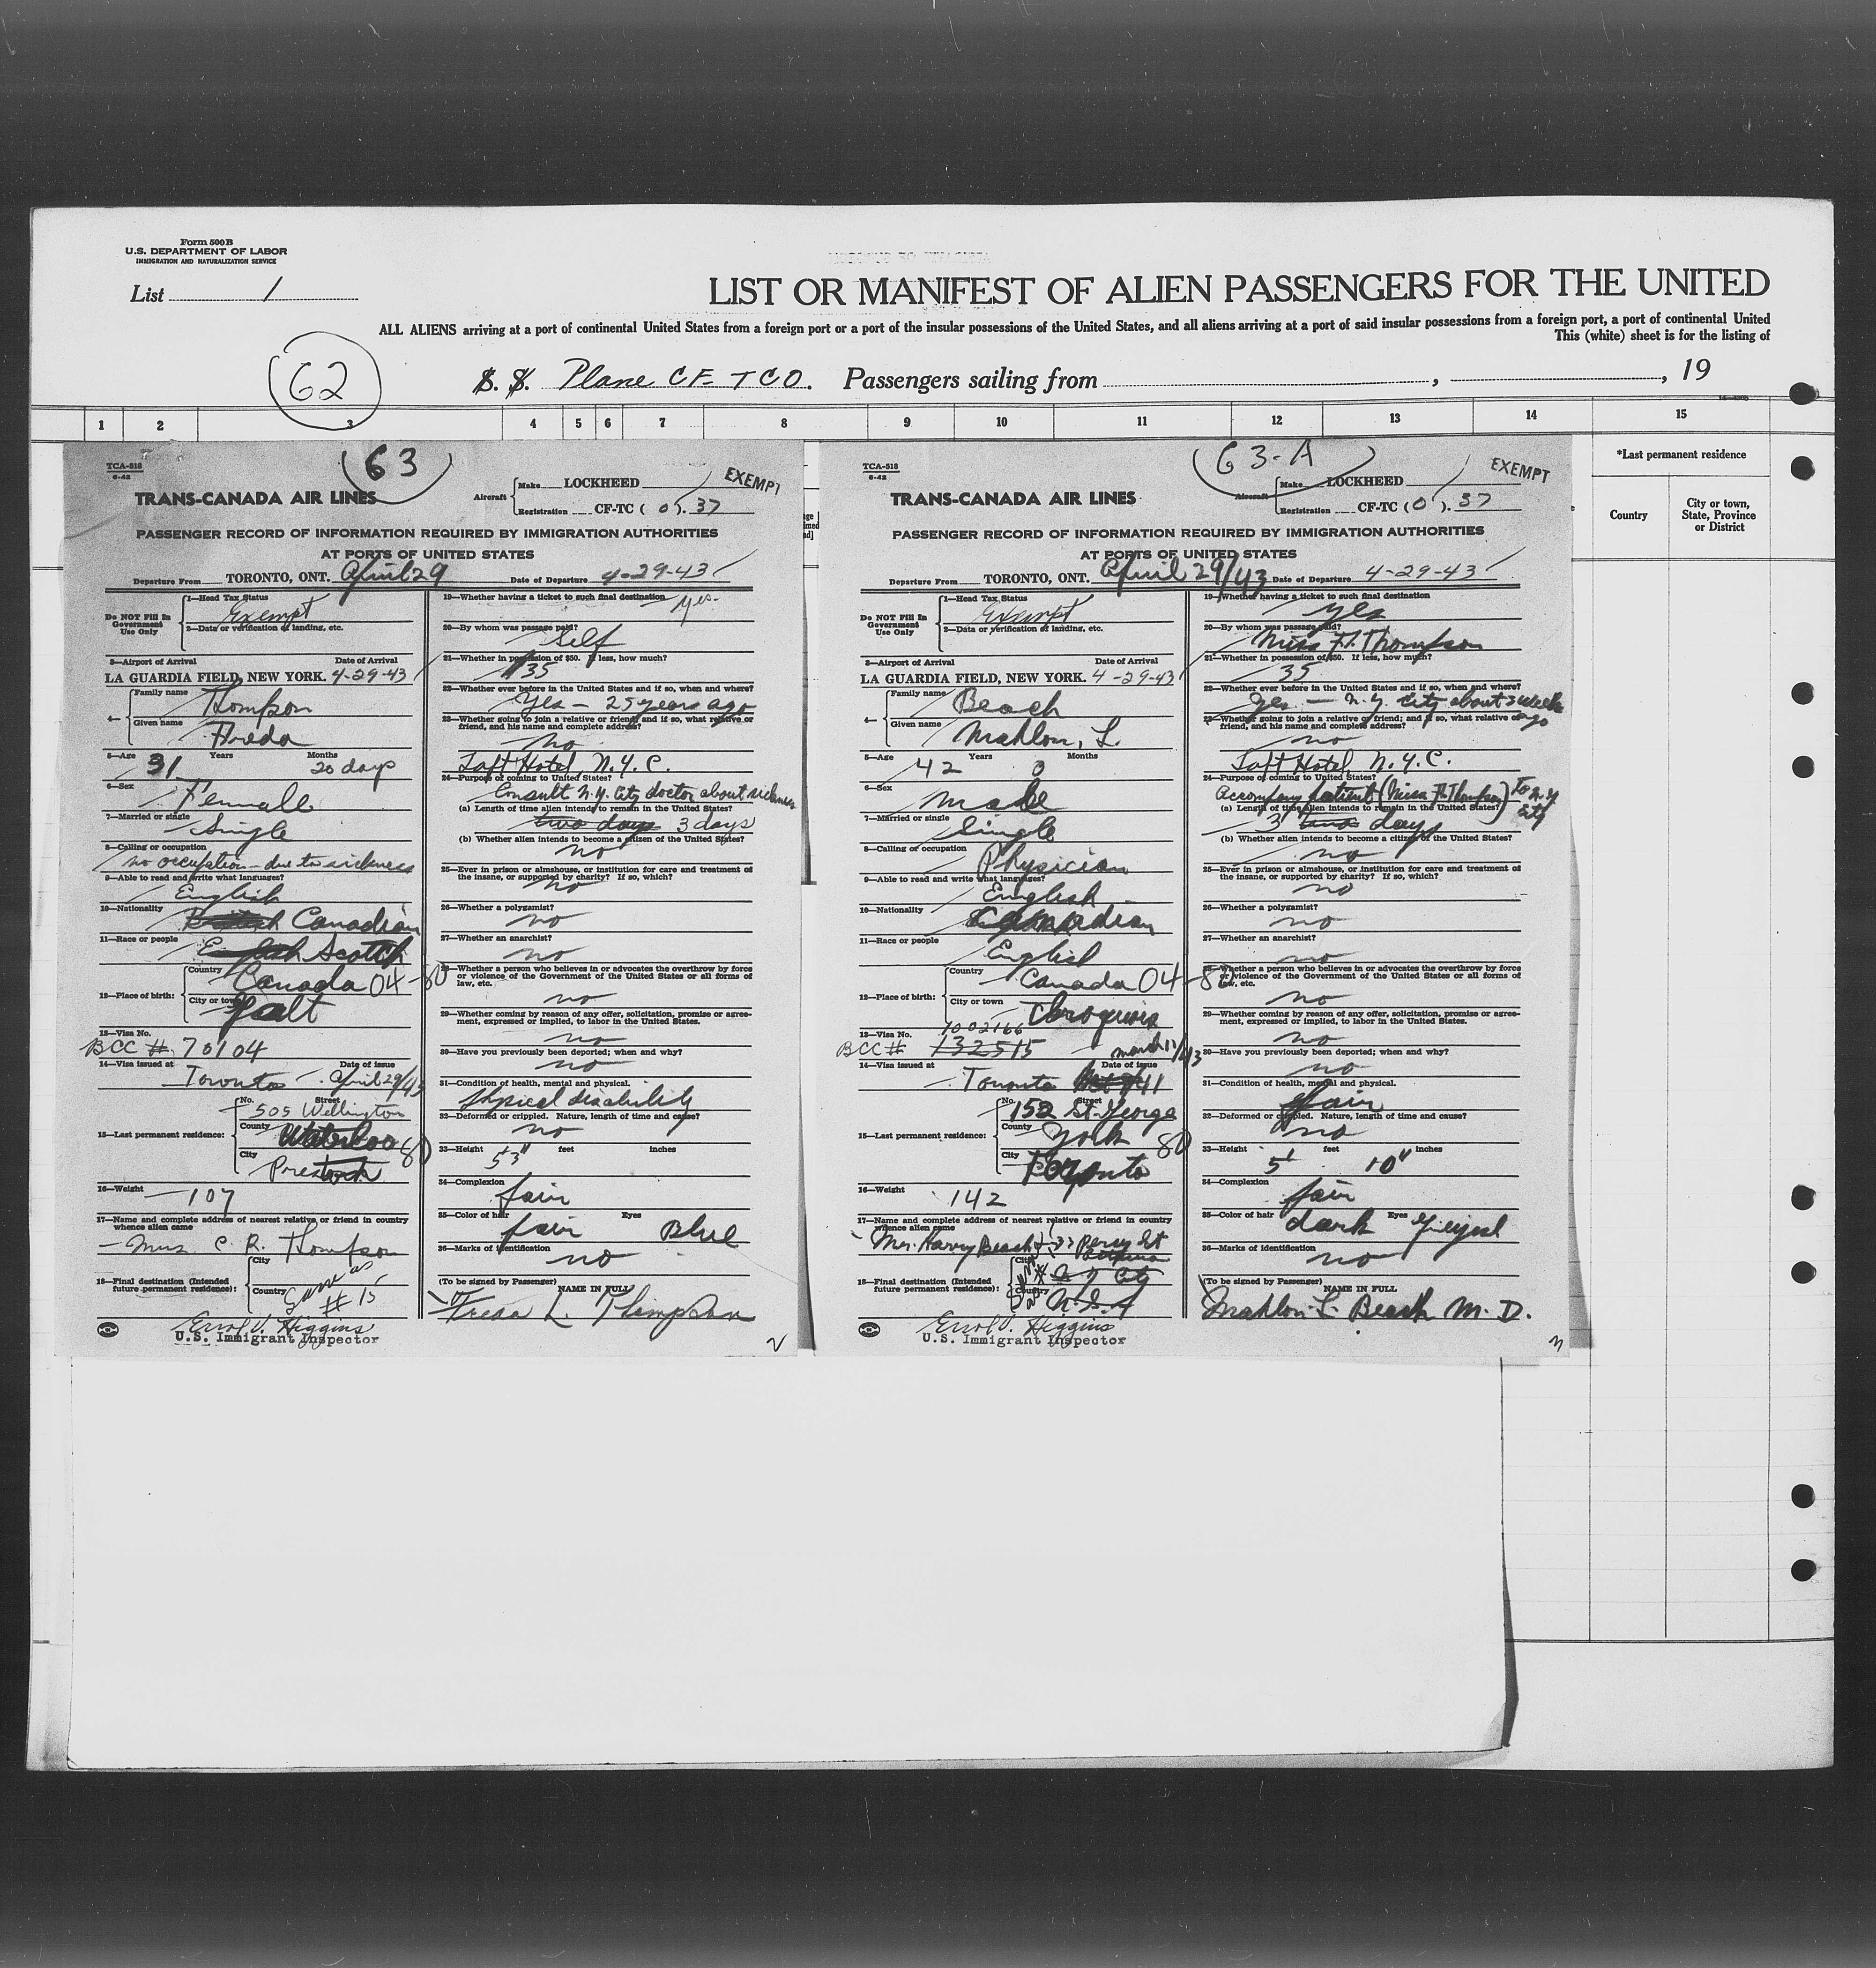 Form 500 B
U.S. DEPARTMENT OF LABOR
IMMIGRATION AND NATURALIZATION SERVICE
List 1
LIST OR MANIFEST OF ALIEN PASSENGERS FOR THE UNITED
ALL ALIENS arriving at a port of continental United States from a foreign port or a port of the insular possessions of the United States, and all aliens arriving at a port of said insular possessions from a foreign port, a port of continental United
This (white) sheet is for the listing of
62
S. S. Plane CF-TCO. Passengers sailing from , , 19
1 2 3 4 5 6 7 8 9 10 11 12 13 14 15
*Last permanent residence
Country
City or town, State, Province or District
TCA-518
6-42
63
EXEMPT
TRANS-CANADA AIR LINES
Aircraft
Make LOCKHEED
Registration CF-TC (O). 37
PASSENGER RECORD OF INFORMATION REQUIRED BY IMMIGRATION AUTHORITIES
AT PORTS OF UNITED STATES
Departure From TORONTO, ONT. April 29 Date of Departure 4-29-43
Do NOT Fill In Government Use Only
1—Head Tax Status
Exempt
2—Data or verification of landing, etc.
3—Airport of Arrival Date of Arrival
LA GUARDIA FIELD, NEW YORK. 4-29-43
4— Family name Thompson
Given name Freda
5—Age 31 Years Months 20 days
6—Sex Female
7—Married or single
Single
8—Calling or occupation
no occupation - due to sickness
9—Able to read and write what languages?
English
10—Nationality
British Canadian
11—Race or people
English Scotch
12—Place of birth: Country Canada 04-80
City or town Galt
13—Visa No.
BCC # 70104
14—Visa issued at Date of issue
Toronto April 29/43
15—Last permanent residence:
No. Street
505 Wellington
County Waterloo 80
City Preston
16—Weight 107
17—Name and complete address of nearest relative or friend in country whence alien came
Mrs. C. R. Thompson
18—Final destination (Intended future permanent residence):
City
Country
Same as # 15
Errol V. Higgins
U.S. Immigrant Inspector
19—Whether having a ticket to such final destination Yes.
20—By whom was passage paid?
Self
21—Whether in possession of $50. If less, how much?
35
22—Whether ever before in the United States and if so, when and where?
Yes - 25 years ago
23—Whether going to join a relative or friend; and if so, what relative or friend, and his name and complete address?
no
Taft Hotel, N.Y.C.
24—Purpose of coming to United States?
Consult N.Y. City doctor about sickness
(a) Length of time alien intends to remain in the United States?
two days 3 days
(b) Whether alien intends to become a citizen of the United States?
no
25—Ever in prison or almshouse, or institution for care and treatment of the insane, or supported by charity? If so, which?
no
26—Whether a polygamist?
no
27—Whether an anarchist?
no
28—Whether a person who believes in or advocates the overthrow by force or violence of the Government of the United States or all forms of law, etc.
no
29—Whether coming by reason of any offer, solicitation, promise or agreement, expressed or implied, to labor in the United States.
no
30—Have you previously been deported; when and why?
no
31—Condition of health, mental and physical.
physical disability
32—Deformed or crippled. Nature, length of time and cause?
no
33—Height 5'3" feet inches
34—Complexion
fair
35—Color of hair Eyes
fair Blue
36—Marks of identification
no
(To be signed by Passenger) NAME IN FULL
Freda L. Thompson
2
TCA-518
6-42
63-A
EXEMPT
TRANS-CANADA AIR LINES
Aircraft
Make LOCKHEED
Registration CF-TC (O). 37
PASSENGER RECORD OF INFORMATION REQUIRED BY IMMIGRATION AUTHORITIES
AT PORTS OF UNITED STATES
Departure From TORONTO, ONT. April 29/43 Date of Departure 4-29-43
Do NOT Fill In Government Use Only
1—Head Tax Status
Exempt
2—Data or verification of landing, etc.
3—Airport of Arrival Date of Arrival
LA GUARDIA FIELD, NEW YORK. 4-29-43
4— Family name Beach
Given name Mahlon, L.
5—Age 42 Years 0 Months
6—Sex male
7—Married or single
Single
8—Calling or occupation
Physician
9—Able to read and write what languages?
English
10—Nationality
Canadian
11—Race or people
English
12—Place of birth: Country Canada 04-80
City or town Iroquois
13—Visa No. 1002166
BCC # 132515 March 11/43
14—Visa issued at Date of issue
Toronto
15—Last permanent residence:
No. Street
152 St. George
County York 80
City Toronto
16—Weight 142
17—Name and complete address of nearest relative or friend in country whence alien came
Mr. Harry Beach Percy St
18—Final destination (Intended future permanent residence):
City N Y City
Country U.S.A
Errol V. Higgins
U.S. Immigrant Inspector
19—Whether having a ticket to such final destination
Yes
20—By whom was passage paid?
Miss F. Thompson
21—Whether in possession of $50. If less, how much?
35
22—Whether ever before in the United States and if so, when and where?
Yes - N.Y. City about 3 weeks ago
23—Whether going to join a relative or friend; and if so, what relative or friend, and his name and complete address?
no
Taft Hotel, N.Y.C.
24—Purpose of coming to United States?
Accompany patient (Miss F. Thompson) To N.Y. City
(a) Length of time alien intends to remain in the United States?
3 two days
(b) Whether alien intends to become a citizen of the United States?
no
25—Ever in prison or almshouse, or institution for care and treatment of the insane, or supported by charity? If so, which?
no
26—Whether a polygamist?
no
27—Whether an anarchist?
no
28—Whether a person who believes in or advocates the overthrow by force or violence of the Government of the United States or all forms of law, etc.
no
29—Whether coming by reason of any offer, solicitation, promise or agreement, expressed or implied, to labor in the United States.
no
30—Have you previously been deported; when and why?
no
31—Condition of health, mental and physical.
fair
32—Deformed or crippled. Nature, length of time and cause?
no
33—Height 5' feet 10" inches
34—Complexion
fair
35—Color of hair Eyes
dark
36—Marks of identification
no
(To be signed by Passenger) NAME IN FULL
Mahlon L. Beach M. D.
3